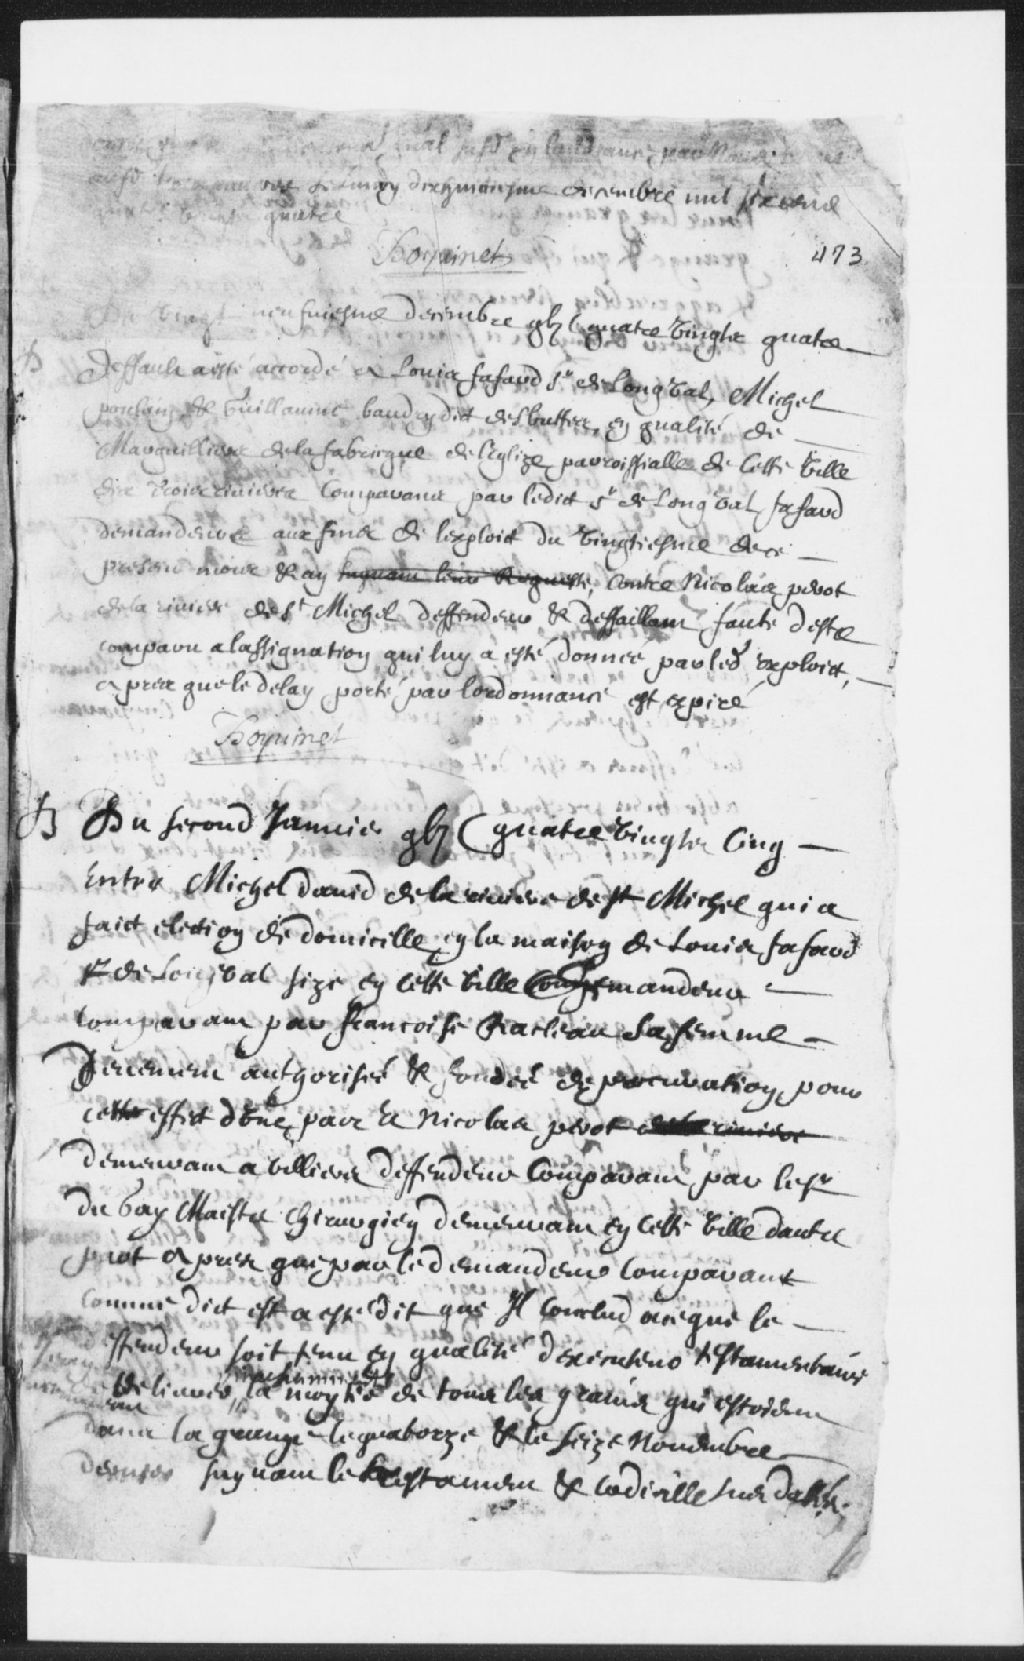 Lundy dixhuictiesme decembre mil six cens
quatre
Boyvinet
473
Du vingt neufuiesme decembre gbjC quatre vingtz quatre
Deffault a esté accordé a Louis fafard Sr de Longval, Michel
poulain & Guillaume baudry dict desbuttes, en qualité de
Marguilliers de la fabricque de leglize parroissialle de cette ville
des trois rivieres comparant par ledict Sr de Longval fafard
demandeurs aux fins de lexploict du vingtiesme de ce
present mois & an suyvant leur Requeste, contre Nicolas perot
de la riviere de St Michel deffendeur & deffaillant faute destre
comparu a lassignation qui luy a esté donnée par led exploict,
apres que le delay porté par lordonnance est expiré
Boyvinet
Du second Janvier gbjC quatre vingtz cinq
Entre Michel david de la riviere de st Michel qui a
faict election de domicille en la maison de Louis fafard
Sr de Longval size en cette ville demandeur
comparant par francoise Racleau sa femme
deuement authorisée & fondée de procuration pour
cest effect d'une part Et Nicolas perot de la riviere
demeurant a villiers deffendeur comparant par le sr
du Gay Maistre chirurgien demeurant en cette ville dautre
part apres que par le demandeur comparant
comme dict est a esté dit que Il conclud a ce que le
deffendeur soit tenu en qualité dexecuteur testamentaire
delivrer la moytié de tous les grains qui estoient
dans la grange le quatorze & le seize Novembre
dernier suyvant le testament & codicille